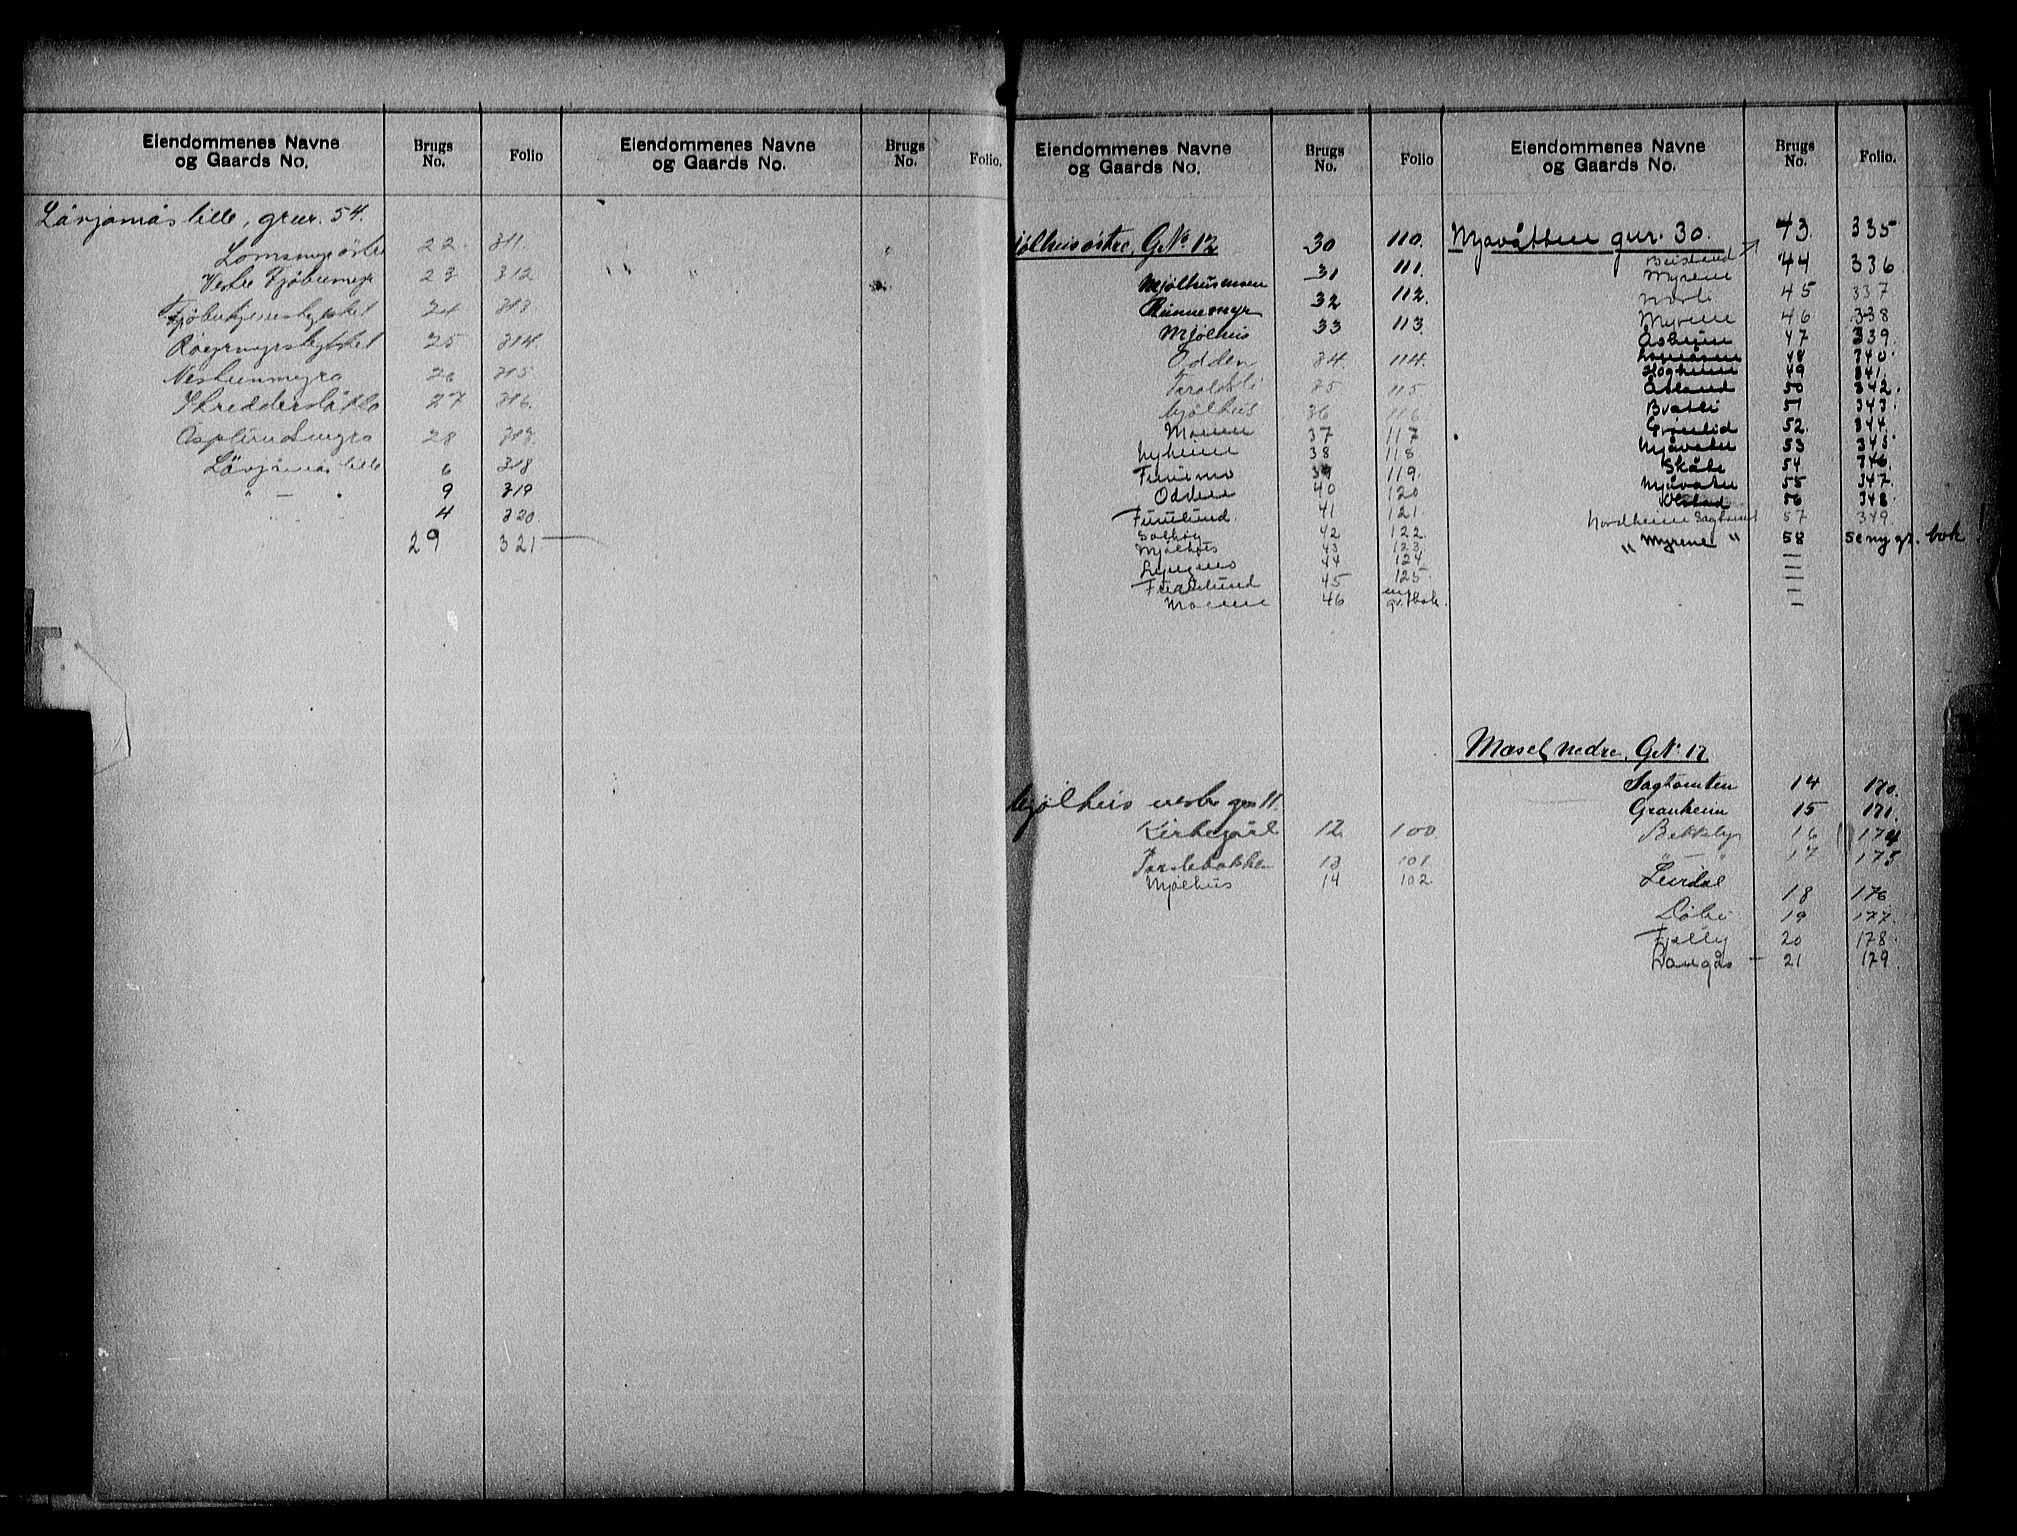 Eiendommenes Navne
og Gaards No.
Brugs
No.
Folio
Lårjomås lille, gnr. 54.
Lomsmyr östre 22. 311.
Vestre Fjöbumyr 23 312
24 313
25 314.
26 315
27 316.
Asplundsmyra 28 317.
lille 6 318
" — " 9 319
4 320.
29 321 —
Eiendommenes Navne
og Gaards No.
Brugs
No.
Folio.
Eiendommenes Navne
og Gaards No.
Brugs
No.
Folio
jølhus östre, G.№ 12 30 110.
Mjölhusmoen 31 111.
Runnemyr 32 112.
Mjölhus 33 113.
Odden 34. 114.
Taroldsli 35 115.
Mjölhus 36 116.
Moene 37 117
Nyheim 38 118
Furumo 39 119.
Oddene 40 120
Furulund. 41 121.
Solhøg 42 122.
Mjølhus 43 123.
Lyngmo 44 124
Furulund 45 125.
Moene 46 gr. bok.
Mjölhus vestre gnr 11.
Kirkegård 12 100
13 101.
Mjølhus 14 102
Eiendommenes Navne
og Gaards No.
Brugs
No.
Folio.
Mjåvatten gnr. 30. 43. 335
Beisland
Myrene 44 336
45 337
Myrene 46 338
Åsheim 47 339.
48 340.
Høgheim 49 341.
Åsland 50 342.
Bratli 51 343.
Grønlid 52. 344.
Mjåvatn 53 345.
Skåle 54 346.
Mjåvatn 55 347.
Ølstad 56 348.
Nordheim Sagtomt 57 349.
" Myrene " 58 Se ny gr. bok
Mæsel nedre, G.№ 17.
Sagtomten 14 170.
Granheim 15 171.
Bekkeby 16 174
" — " 17 175
Leirdal 18 176
19 177.
Fjelly 20 178.
Langås — 21 179.